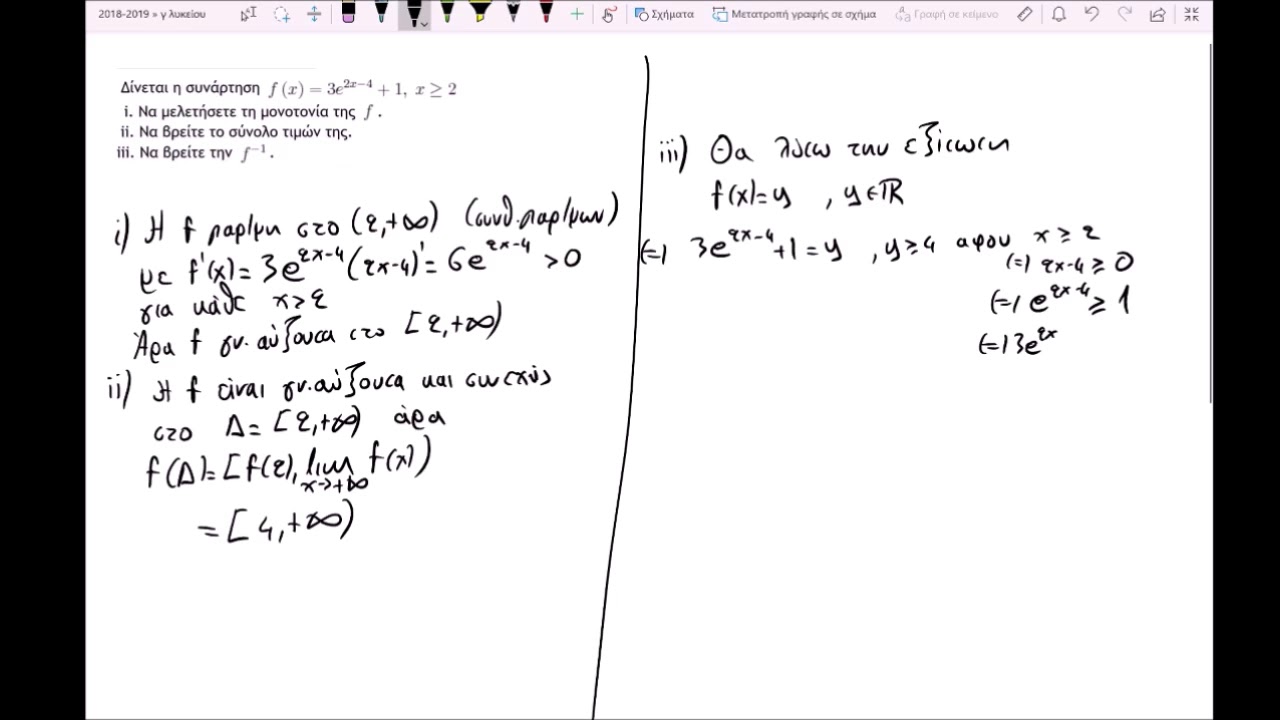 2018-2019 » γ λυκείου
Σχήματα
Μετατροπή γραφής σε σχήμα
Γραφή σε κείμενο
Δίνεται η συνάρτηση f(x) = 3e^{2x-4} + 1, x ≥ 2
i. Να μελετήσετε τη μονοτονία της f .
ii. Να βρείτε το σύνολο τιμών της.
iii. Να βρείτε την f^{-1} .
i) Η f παρ/μη στο (2,+∞) (συνθ. παρ/μων)
με f'(x)= 3e^{2x-4}(2x-4)'= 6e^{2x-4} >0
για κάθε x>2
Άρα f γν. αύξουσα στο [2,+∞)
ii) Η f είναι γν. αύξουσα και συνεχής
στο Δ= [2,+∞) άρα
f(Δ)= [f(2), lim f(x))
x->+∞
= [4,+∞)
iii) Θα λύσω την εξίσωση
f(x)=y , y∈ℝ
(=) 3e^{2x-4}+1=y , y≥4 αφου x≥2
(=) 2x-4≥0
(=) e^{2x-4}≥1
(=) 3e^{2x}